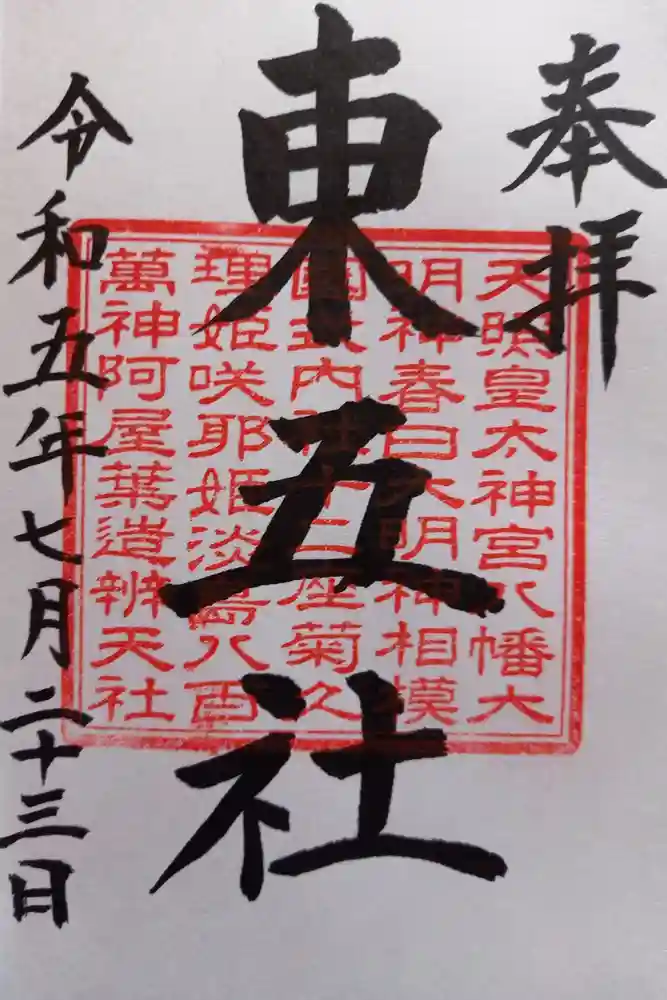 奉拝
東五社
天照皇太神宮八幡大
明神春日大明神相模
国式内社十三座菊久
理姫咲耶姫淡島八百
萬神阿屋葉造辨天社
令和五年七月二十三日